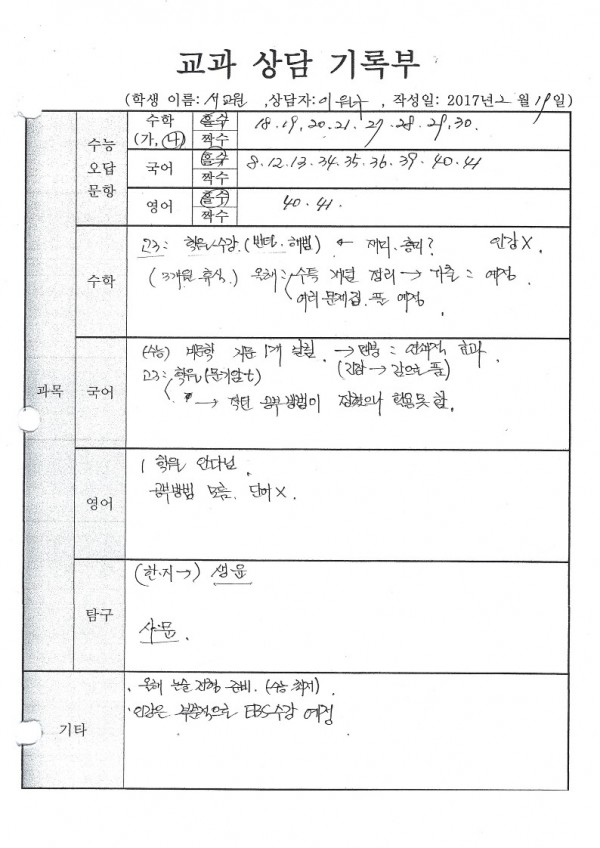 교과 상담 기록부
(학생 이름: 서교원 ,상담자: 이 , 작성일: 2017년 2월 19일)
수능 오답 문항
수학 (가, 나) 홀수 짝수 18.19.20.21.27.28.29.30.
국어 홀수 짝수 8.12.13.34.35.36.39.40.41
영어 홀수 짝수 40.41.
과목
수학
고3: 학원수강.(반란. 해법) ← 정리? 인강X.
(3개월 휴식.) 올해: 수특 개념 정리 → 기출 = 예정.
여러 문제집 풀 예정
국어
(수능) 비문학 지문 1개 날림. → 멘붕 = 연쇄적 효과.
고3: 학원 (긴장 → 감으로 품)
→ 작년 공부 방법이 잡혔으나 활용 못 함.
영어
학원 안다님.
공부방법 모름. 단어X.
탐구
(한.지→) 생.윤
사.문.
기타
. 올해 논술 전형 준비. (수능 최저).
. 인강은 부분적으로 EBS수강 예정